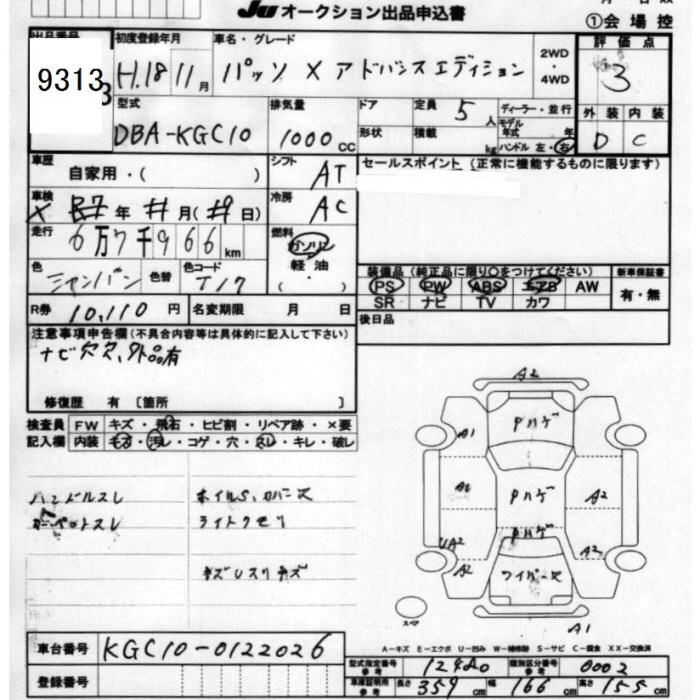 JU オークション出品申込書
①会場控
出品番号 初度登録年月 車名・グレード 2WD・4WD 評価点
9313 H.18 11月 パッソ X アドバンスエディション 3
型式 排気量 ドア 定員 5人 ディーラー・並行 外装 内装
DBA-KGC10 1000cc 形状 積載 kg モデル年式 年 ハンドル 左・右 D C
車歴 自家用・( ) シフト AT セールスポイント (正常に機能するものに限ります)
車検 年 月 ( 日) 冷房 AC
走行 6万7千966km 燃料 ガソリン 軽油・( )
色 シャンパン 色替 色コード T17
装備品 (純正品に限り○をつけてください) 新車保証書
PS PW ABS エアB AW 有・無
SR ナビ TV カワ
R券 10,110円 名変期限 月 日
後日品
注意事項申告欄(不具合内容等は具体的に記入して下さい)
ナビ穴穴、外品有
修復歴 有 [箇所 ]
検査員 FW キズ・飛石・ヒビ割・リペア跡・×要
記入欄 内装 キズ・汚レ・コゲ・穴・スレ・キレ・破レ
ハンドルスレ ホイルS、カバー欠
カーペットスレ ライトクモリ
キズUスリキズ
A2
A1 Pハゲ
Pハゲ A2
Pハゲ
UA2 A2
A2 ワイパー欠
スペア
A1
車台番号 KGC10-0122026
A－キズ E－エクボ U－凹み W－補修跡 S－サビ C－腐食 XX－交換済
登録番号
型式指定番号 参考 12480 類別区分番号 参考 0002
車庫証明用 参考 長さ 359cm 幅 166cm 高さ 155cm